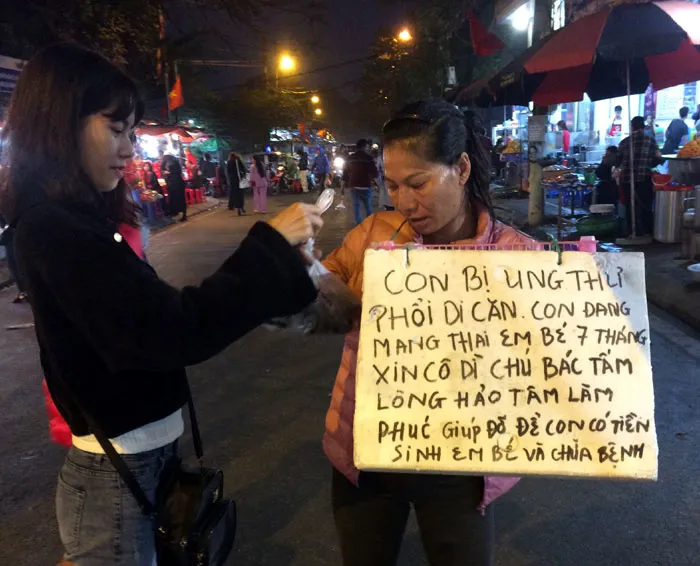 CON BỊ UNG THƯ
PHỔI DI CĂN. CON ĐANG
MANG THAI EM BÉ 7 THÁNG
XIN CÔ DÌ CHÚ BÁC TẤM
LÒNG HẢO TÂM LÀM
PHUC GIÚP ĐỠ ĐỂ CON CÓ TIỀN
SINH EM BÉ VÀ CHỮA BỆNH